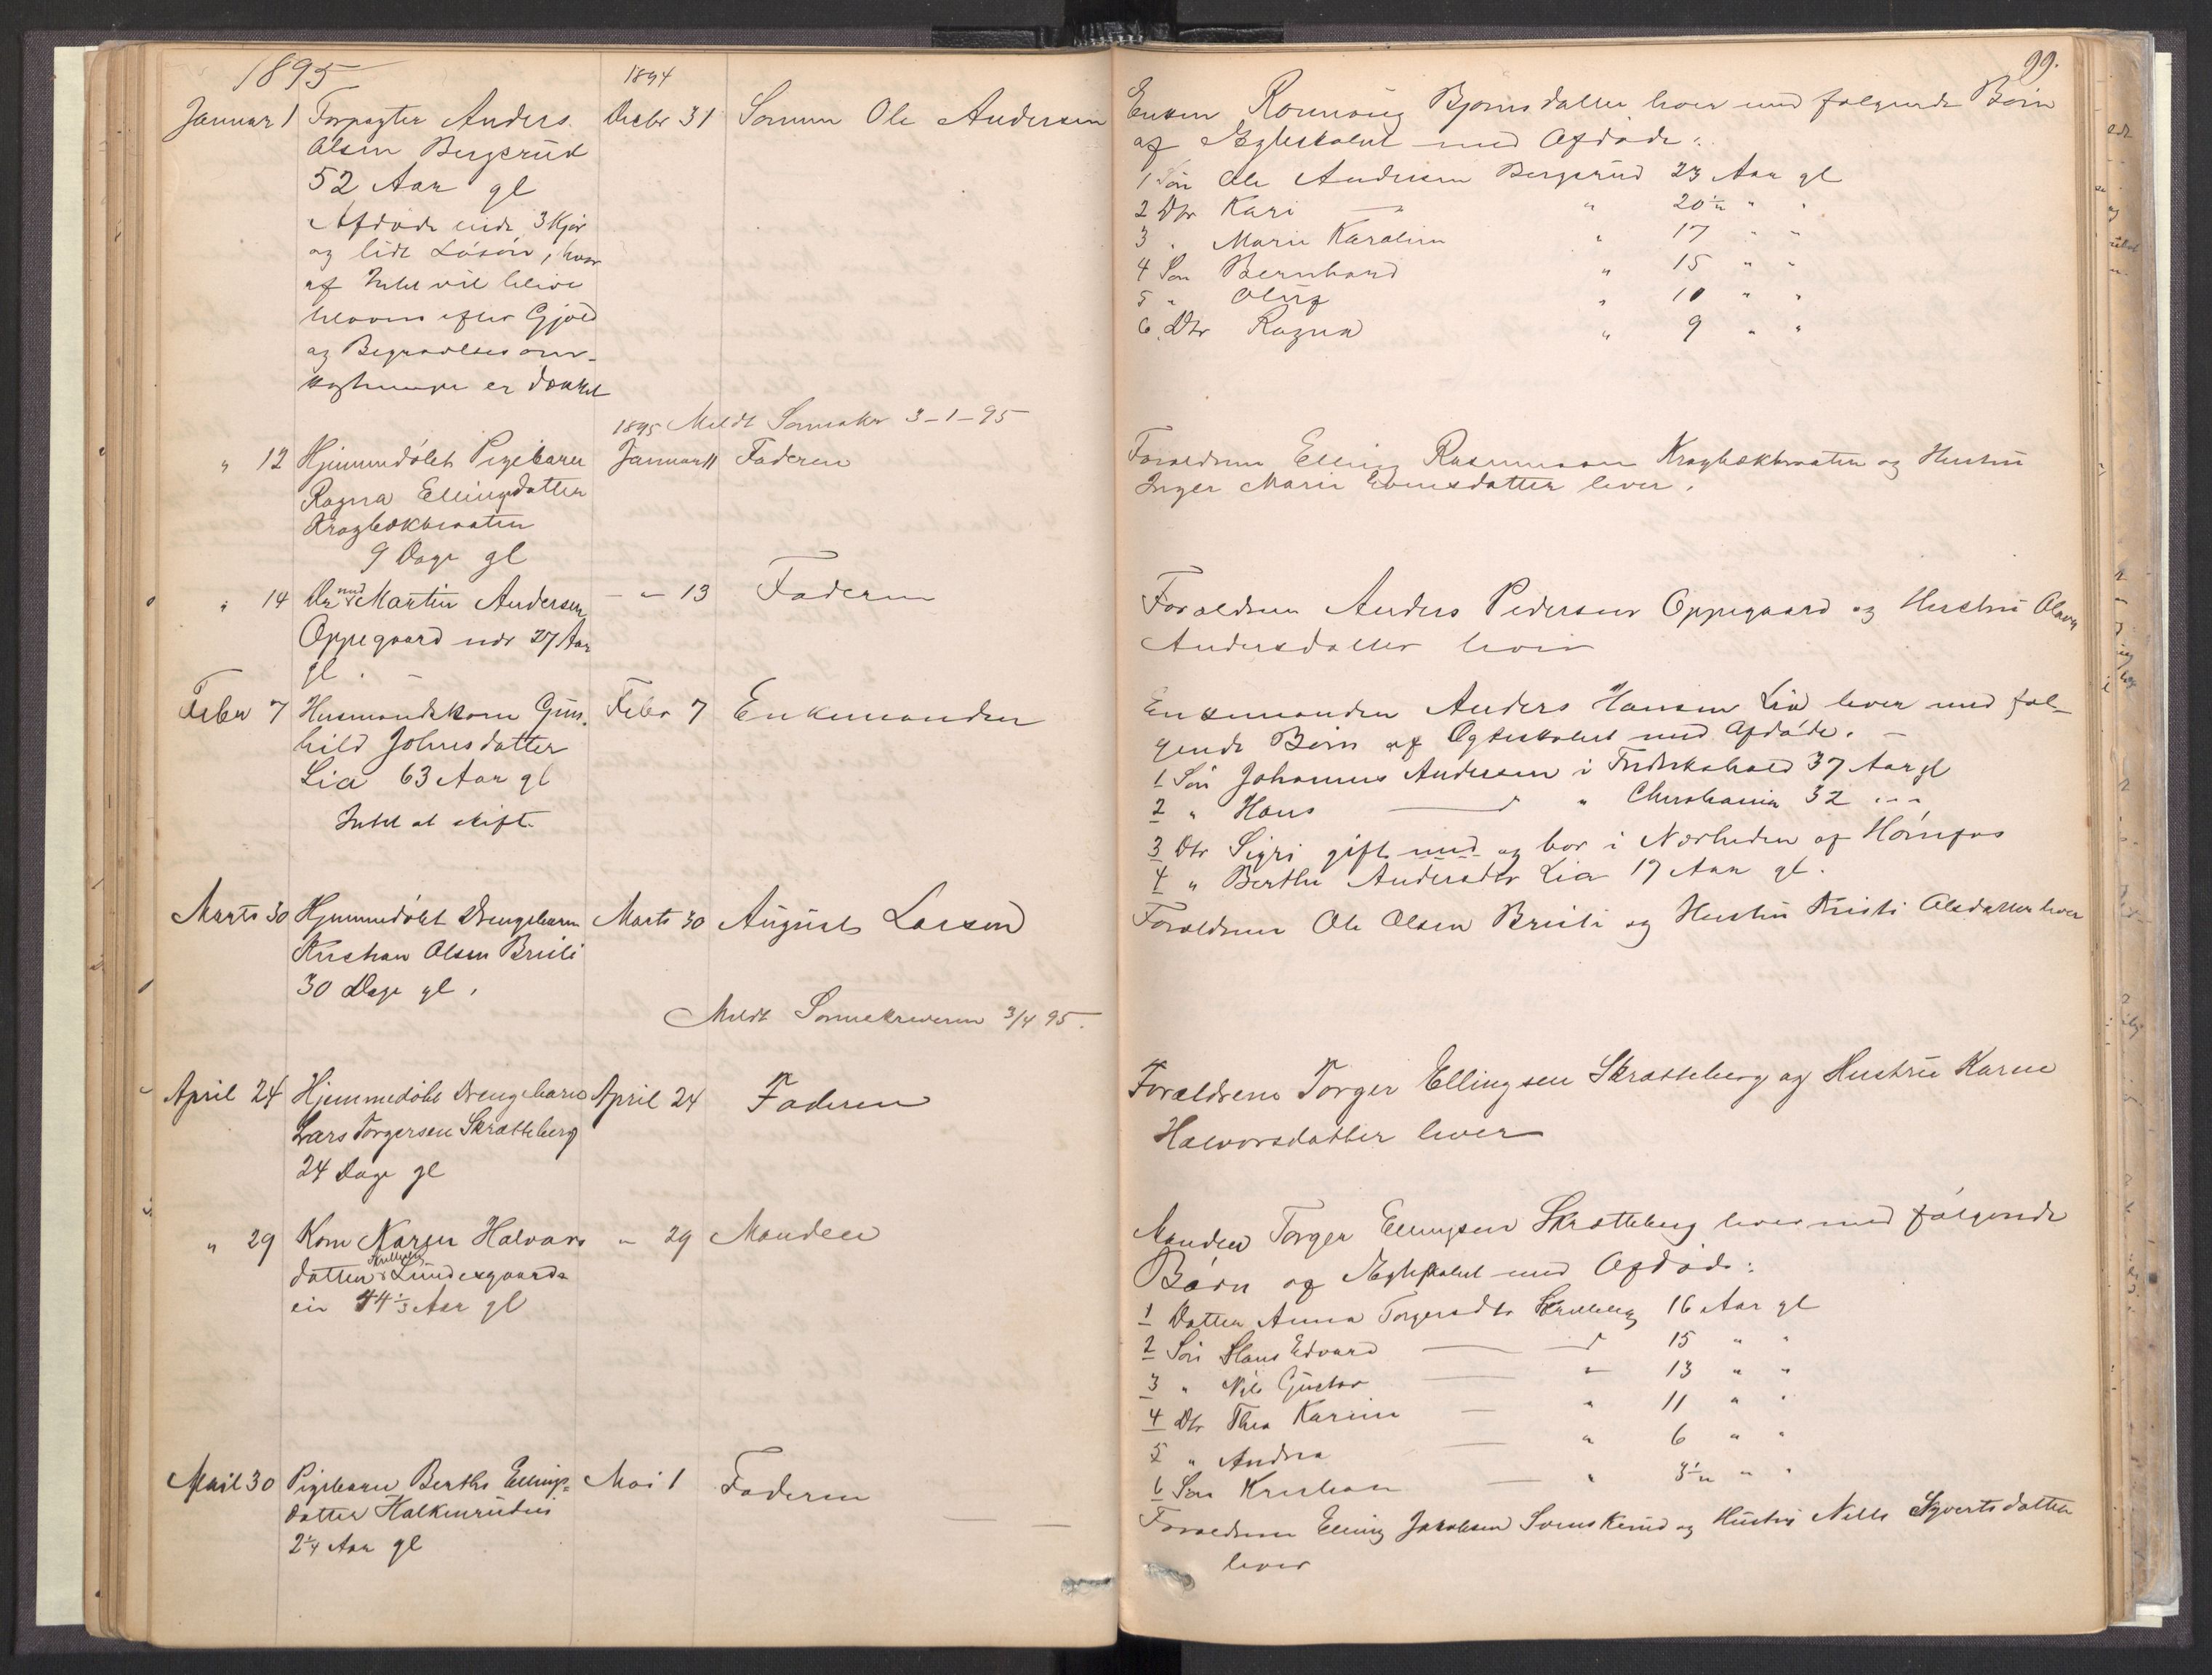 1895
1894
Januar 1 Forpagter Anders Decbr 31 Sønnen Ole Andersen
Olsen Bergerud
52 Aar gl
Afdøde eiede 3 Kjør
og lidt Løsøre, hvor
af Intet vil blive
tilovers efter Gjæld
og Begravelsesom-
kostninger er dækket
1895 Meldt Sorenskr 3-1-95
" 12 Hjemmedøbt Pigebarn Januar 11 Faderen
Ragna Ellingsdatter
Kragbækbraaten
9 Dage gl
" 14 Martin Andersen - " 13 Faderen
Oppegaard 27 Aar
gl.
Febr 7 Husmandskone Gun- Febr 7 Enkemanden
hild Johnsdatter
Lia 63 Aar gl
Intet at skifte
Marts 30 Hjemmedøbt Drengebarn Marts 30 August Larsen
Kristian Olsen Bruli
30 Dage gl.
Meldt Sorenskriveren 3/4 95.
April 24 Hjemmedøbt Drengebarn April 24 Faderen
Lars Torgersen Skratteberg
24 Dage gl
" 29 Kone Karen Halvors " 29 Manden
datter Lundesgaard-
ein 44 1/3 Aar gl
April 30 Pigebarn Berthe Ellings- Mai 1 Faderen
datter Halkenrudeie
2 1/4 Aar gl
99.
Enken Rønnaug Bjørnsdatter lever med følgende Børn
af Ægteskabet med Afdøde:
1 Søn Ole Andersen Bergerud 23 Aar gl
2 Dtr Kari — " 20 1/2 " "
3 " Marie Karoline " 17 " "
4 Søn Bernhard " 15 " "
5 " Oluf " 10 " "
6 Dtr Ragna " 9 " "
Forældrene Elling Rasmussen Kragbækbraaten og Hustru
Inger Marie Evensdatter lever.
Forældrene Anders Pedersen Oppegaard og Hustru Olava
Andersdatter lever
Enkemanden Anders Hansen Lia lever med føl-
gende Børn af Ægteskabet med Afdøde. -
1 Søn Johannes Andersen i Fredrikshald 37 Aar gl
2 " Hans — " Christiania 32 " "
3 Dtr Sigri gift med og bor i Nærheden af Hønefos
4 " Berthe Andersdtr Lia 17 Aar gl.
Forældrene Ole Olsen Bruli og Hustru Kristi Olsdatter lever
Forældrene Torger Ellingsen Skratteberg og Hustru Karen
Halvorsdatter lever
Manden Torger Ellingsen Skratteberg lever med følgende
Børn af Ægteskabet med Afdøde:
1 Datter Anna Torgersdtr Skratteberg 16 Aar gl
2 Søn Hans Edvard — " 15 " "
3 " Nils Gustav — " 13 " "
4 Dtr Thea Karine — " 11 " "
5 " Andrea — " 6 " "
6 Søn Kristian — " 3 1/2 " "
Forældrene Elling Jakobsen Svenskerud og Hustru Nille Syvertsdatter
lever